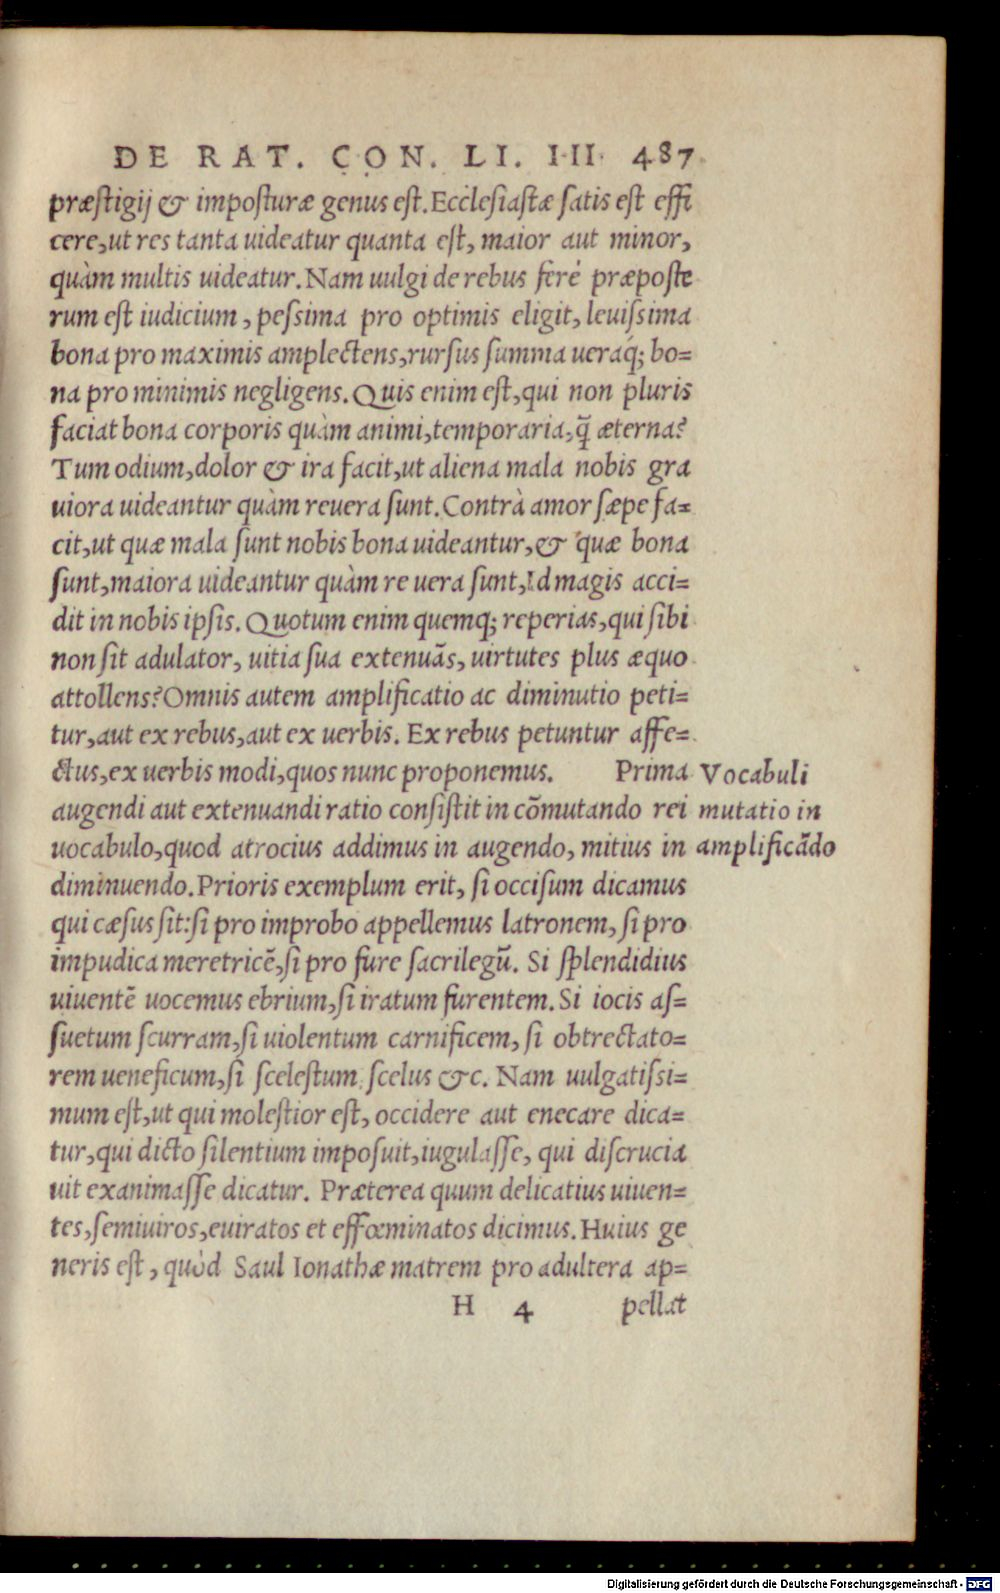 DE RAT. CON. LI. III. 487
præstigij & imposturæ genus est. Ecclesiastæ satis est effi
cere, ut res tanta uideatur quanta est, maior aut minor,
quàm multis uideatur. Nam uulgi de rebus ferè præposte
rum est iudicium, pessima pro optimis eligit, leuissima
bona pro maximis amplectens, rursus summa ueraq́; bo=
na pro minimis negligens. Quis enim est, qui non pluris
faciat bona corporis quàm animi, temporaria, q̃ æterna?
Tum odium, dolor & ira facit, ut aliena mala nobis gra
uiora uideantur quàm reuera sunt. Contrà amor sæpe fa=
cit, ut quæ mala sunt nobis bona uideantur, & quæ bona
sunt, maiora uideantur quàm re uera sunt, Id magis acci=
dit in nobis ipsis. Quotum enim quemq; reperias, qui sibi
non sit adulator, uitia sua extenuãs, uirtutes plus æquo
attollens? Omnis autem amplificatio ac diminutio peti=
tur, aut ex rebus, aut ex uerbis. Ex rebus petuntur affe=
ctus, ex uerbis modi, quos nunc proponemus. Prima
augendi aut extenuandi ratio consistit in cõmutando rei
uocabulo, quod atrocius addimus in augendo, mitius in
diminuendo. Prioris exemplum erit, si occisum dicamus
qui cæsus sit: si pro improbo appellemus latronem, si pro
impudica meretricẽ, si pro fure sacrilegũ. Si splendidius
uiuentẽ uocemus ebrium, si iratum furentem. Si iocis as=
suetum scurram, si uiolentum carnificem, si obtrectato=
rem ueneficum, si scelestum scelus &c. Nam uulgatissi=
mum est, ut qui molestior est, occidere aut enecare dica=
tur, qui dicto silentium imposuit, iugulasse, qui discrucia
uit exanimasse dicatur. Præterea quum delicatius uiuen=
tes, semiuiros, euiratos et effœminatos dicimus. Huius ge
neris est, quòd Saul Ionathæ matrem pro adultera ap=
H 4 pellat
Vocabuli
mutatio in
amplificãdo
Digitalisierung gefördert durch die Deutsche Forschungsgemeinschaft - DFG